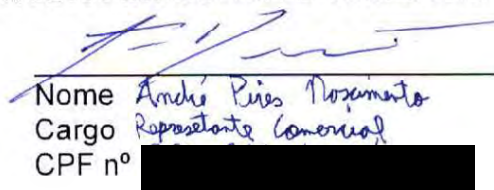 Nome André Pires Nascimento
Cargo Represetante Comercial
CPF nº